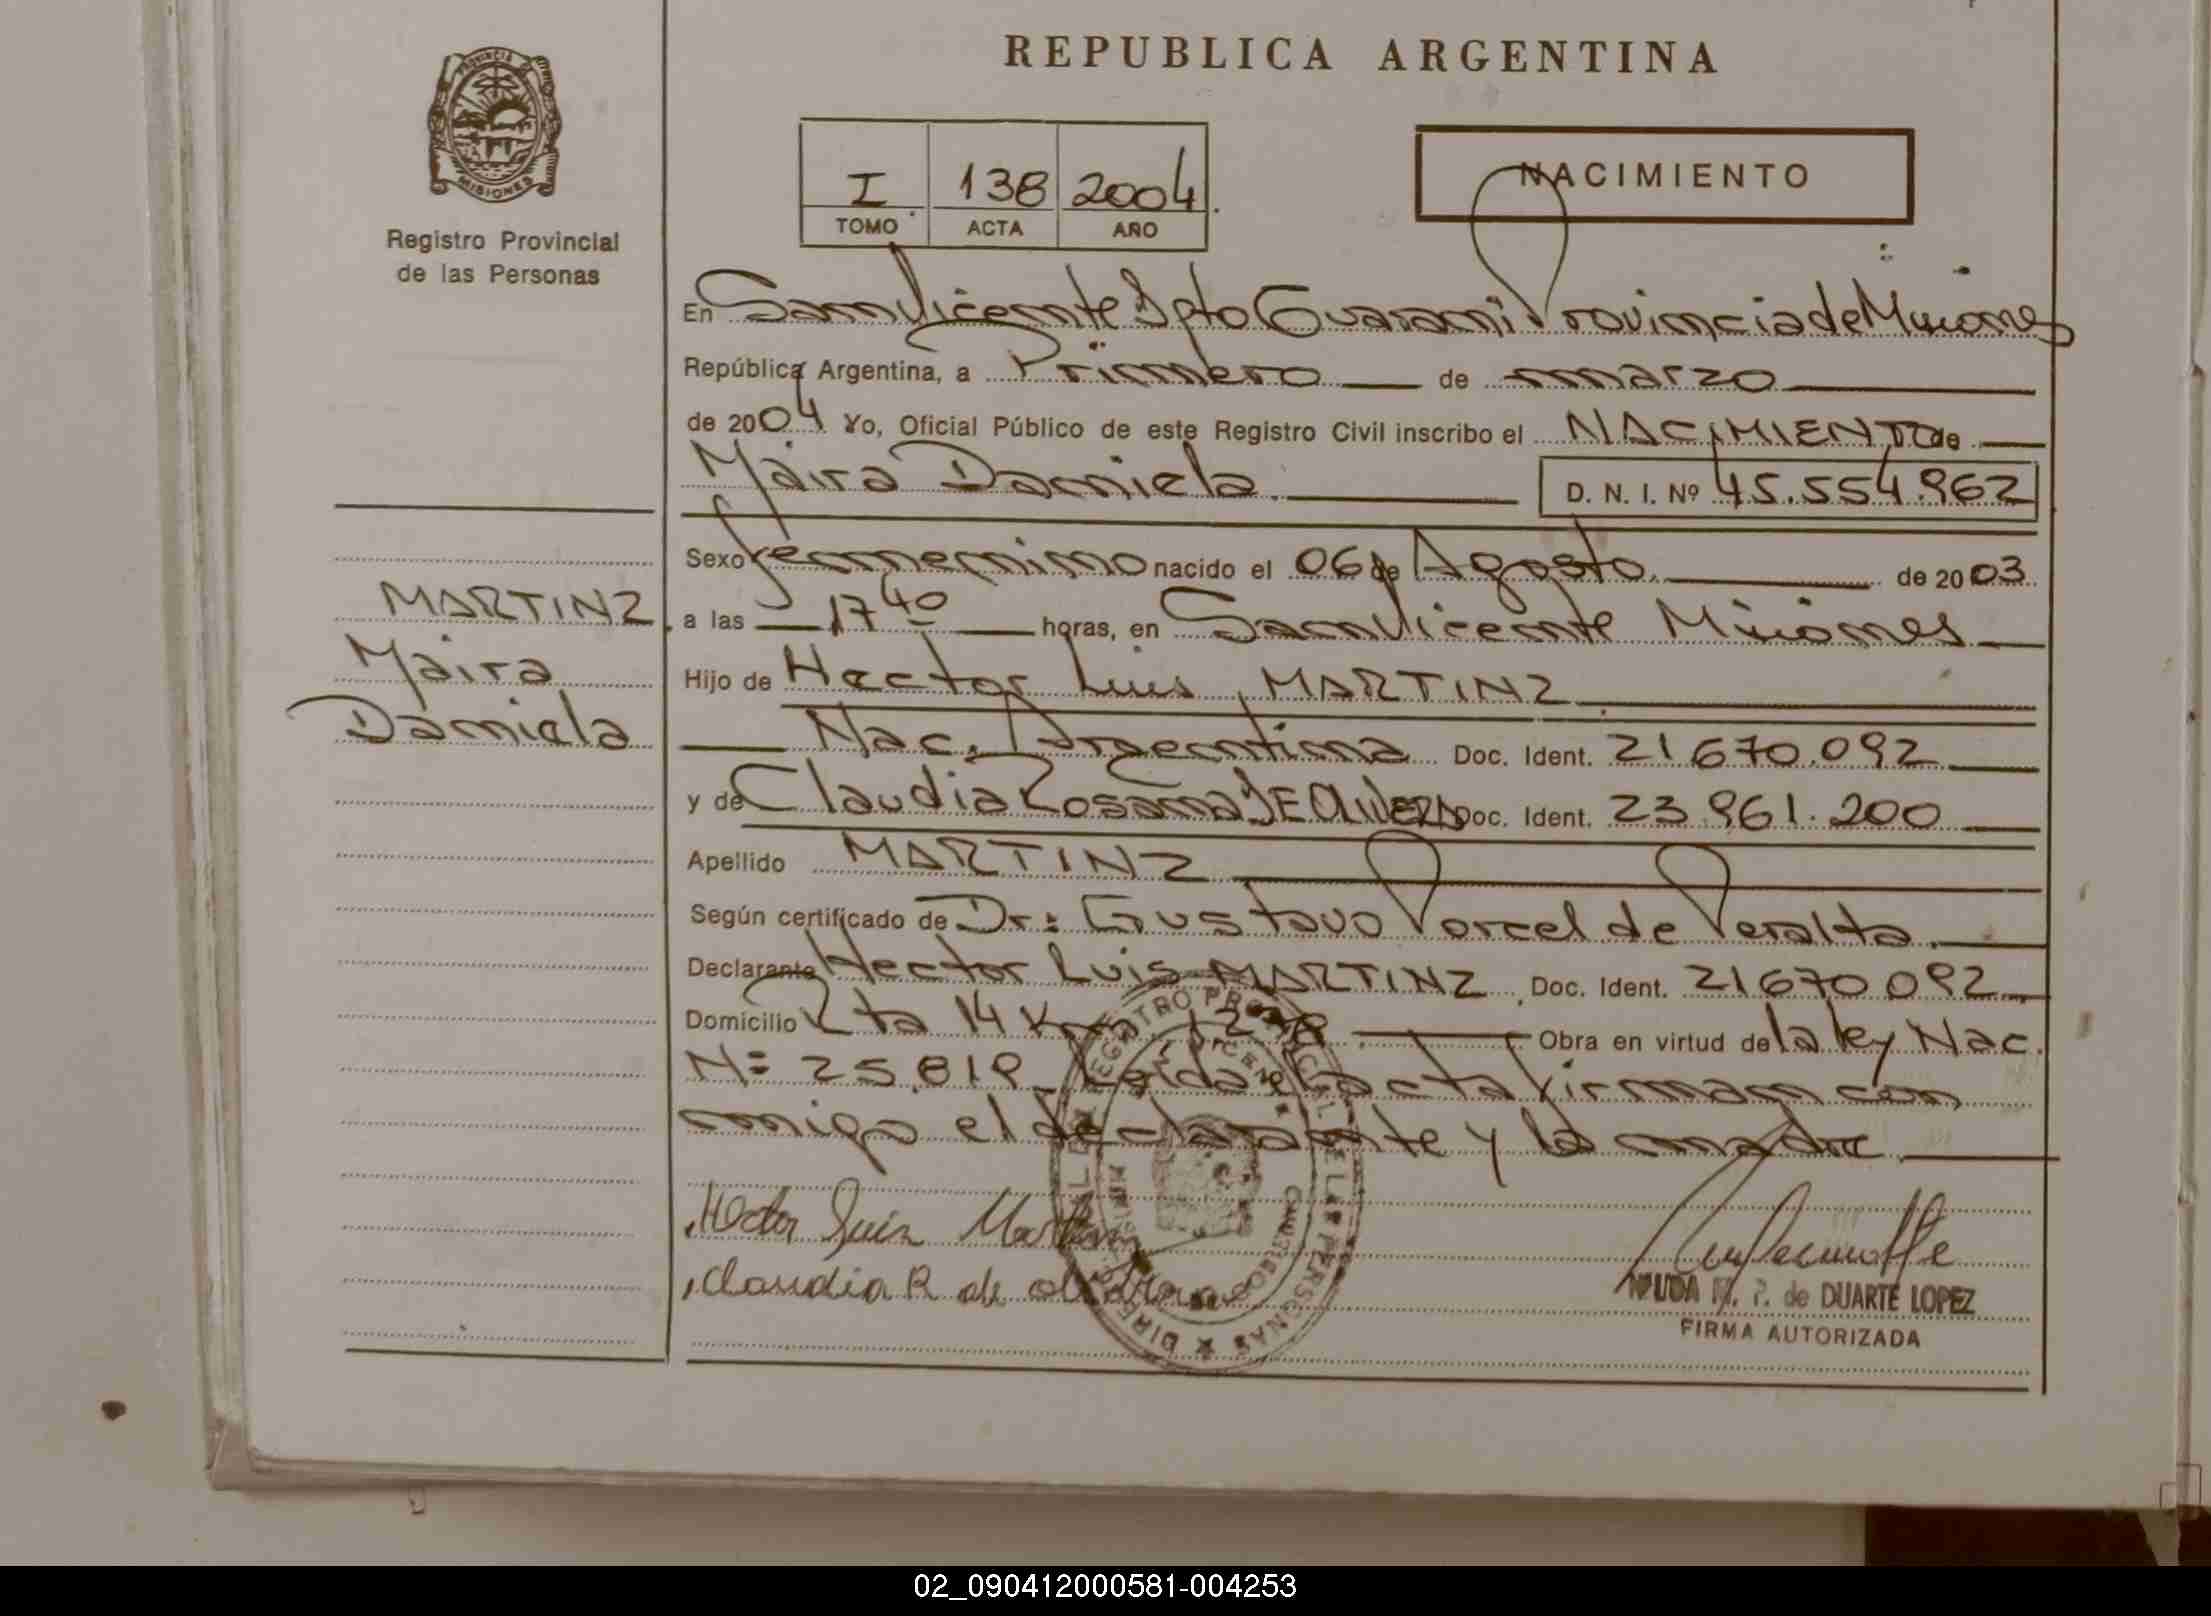 REPUBLICA ARGENTINA
PROVINCIA DE
MISIONES
Registro Provincial
de las Personas
I 138 2004
TOMO ACTA AÑO
NACIMIENTO
En San Vicente Dpto Guarani Provincia de Misiones
República Argentina, a Primero de marzo
de 2004 Yo, Oficial Público de este Registro Civil inscribo el NACIMIENTO de
Maira Daniela D. N. I. Nº 45.554.962
Sexo femenino nacido el 06 de Agosto de 2003
MARTINZ
Maira
Daniela
a las 17 40 horas, en San Vicente Misiones
Hijo de Hector Luis MARTINZ
Nac. Argentina Doc. Ident. 21670.092
y de Claudia Rosana Doc. Ident. 23.961.200
Apellido MARTINZ
Según certificado de Dr: Gustavo Porcel de Peralta
Declarante Hector Luis MARTINZ Doc. Ident. 21670092
Domicilio Rta 14 Km Obra en virtud de la ley Nac.
Nº 25.819 Leída el acta firman con
migo el declarante y la madre
Hector Luis Martinz
Claudia R de
DUARTE LOPEZ
FIRMA AUTORIZADA
02_090412000581-004253